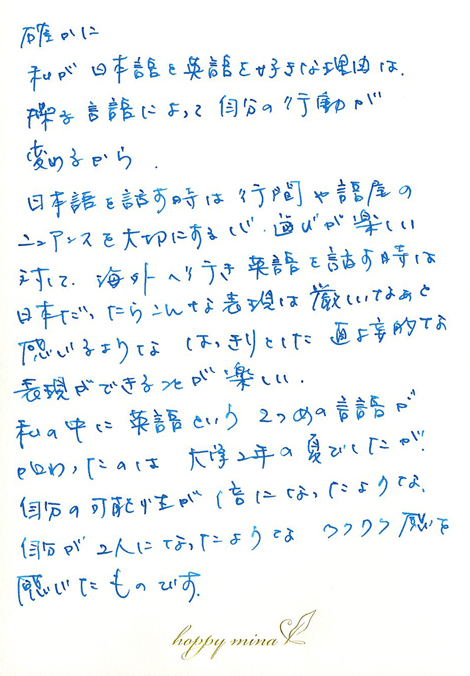 確かに
私が日本語と英語を好きな理由は、
操る言語によって自分の行動が
変わるから.
日本語を話す時は行間や語尾の
ニュアンスを大切にするし、遊びが楽しい
対して、海外へ行き英語を話す時は
日本だったらこんな表現は厳しいなぁと
感じるような はっきりとした 直接的な
表現ができることが楽しい.
私の中に英語という2つめの言語が
加わったのは 大学2年の夏でしたが、
自分の可能性が1倍になったような、
自分が2人になったような ワクワク感を
感じたものです.
happy mina